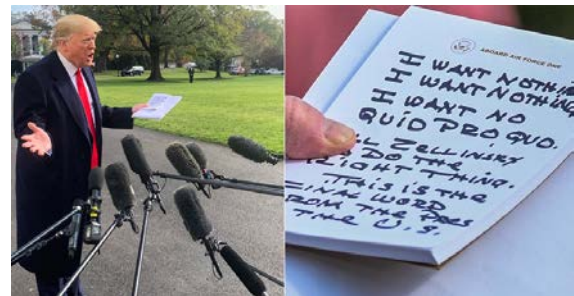 ABOARD AIR FORCE ONE
I WANT NOTHIN
I WANT NOTHING
I WANT NO
QUID PRO QUO.
ZELLINSKY
DO THE
RIGHT THING.
THIS IS THE
FINAL WORD
FROM THE PRES
THE U.S.